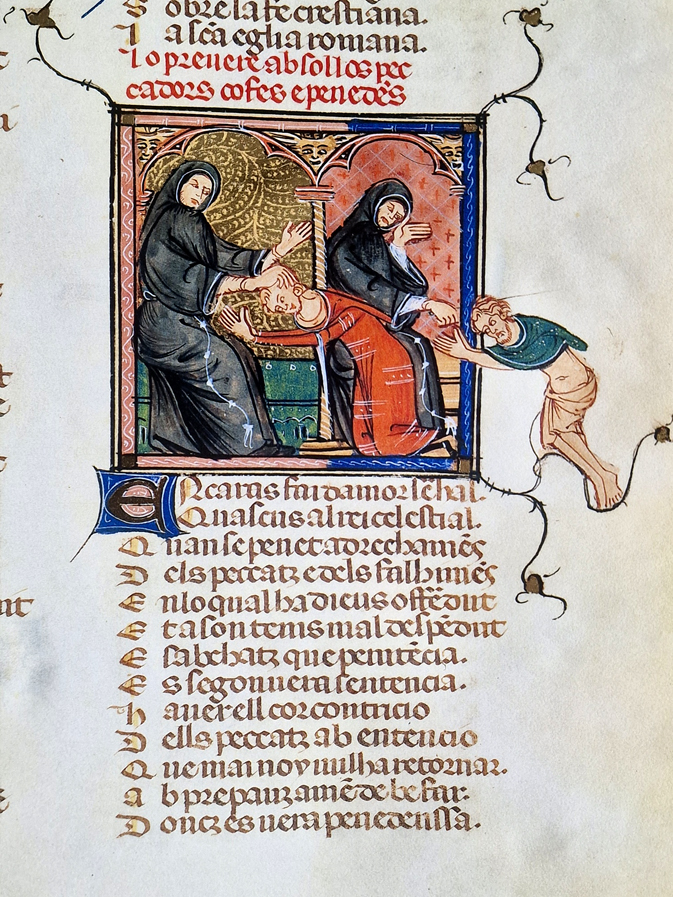 S obre la fe crestiana.
I a sca eglia romana.
Lo prevere absol los pec
cadors cofes e penedes
E Ncaras fai damor le hal.
Quascus al rei celestial.
Q uan se penet adrechamēs
D els peccatz e dels falhimēs
E n lo qual ha dieus offēdut
E ta son tems mal despēdut
E sabchatz que penitēcia.
E s segon vera sentencia.
h aver ell cor contricio
D ells peccatz ab entencio
Q ue mai noy vulha retornar.
a b prepauzamē de be far.
D oncz es vera penedenssa.